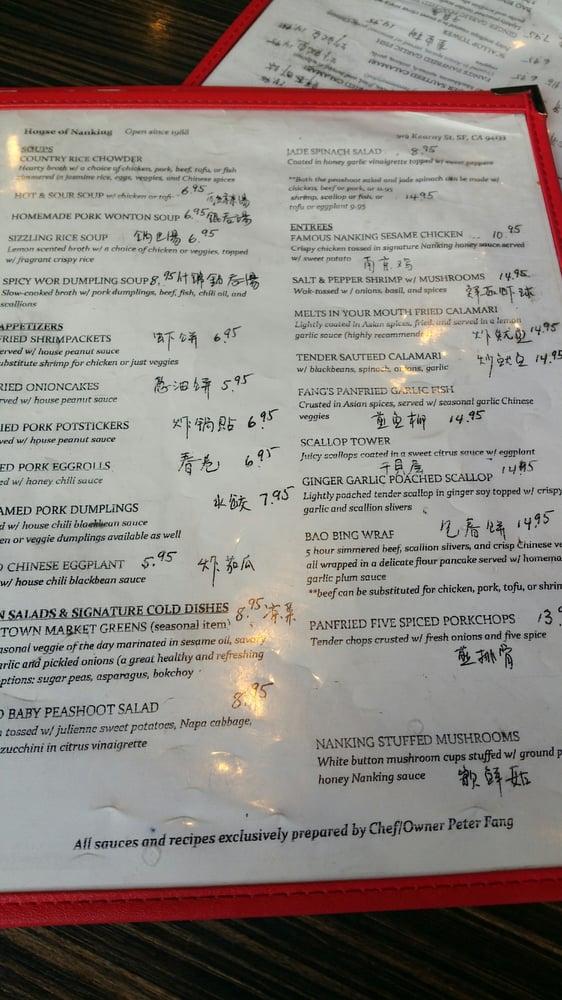 House of Nanking Open since 1988
919 Kearny St, SF, CA 94133
SOUPS
COUNTRY RICE CHOWDER
Hearty broth w/ a choice of chicken, pork, beef, tofu, or fish
simmered in jasmine rice, eggs, veggies, and Chinese spices
HOT & SOUR SOUP w/ chicken or tofu 6.95
HOMEMADE PORK WONTON SOUP 6.95
SIZZLING RICE SOUP 鍋巴湯 6.95
Lemon scented broth w/ a choice of chicken or veggies, topped
w/ fragrant crispy rice
SPICY WOR DUMPLING SOUP 8.95
Slow-cooked broth w/ pork dumplings, beef, fish, chili oil, and
scallions
APPETIZERS
FRIED SHRIMPACKETS 虾饼 6.95
served w/ house peanut sauce
substitute shrimp for chicken or just veggies
RIED ONIONCAKES 葱油饼 5.95
rved w/ house peanut sauce
IED PORK POTSTICKERS 炸锅貼 6.95
ved w/ house peanut sauce
ED PORK EGGROLLS 春卷 6.95
ed w/ honey chili sauce
AMED PORK DUMPLINGS 水餃 7.95
d w/ house chili blackbean sauce
en or veggie dumplings available as well
D CHINESE EGGPLANT 5.95 炸茄瓜
w/ house chili blackbean sauce
N SALADS & SIGNATURE COLD DISHES 8.95
TOWN MARKET GREENS (seasonal item)
asonal veggie of the day marinated in sesame oil, savory
arlic and pickled onions (a great healthy and refreshing
options: sugar peas, asparagus, bokchoy
8.95
D BABY PEASHOOT SALAD
n tossed w/ julienne sweet potatoes, Napa cabbage,
zucchini in citrus vinaigrette
JADE SPINACH SALAD 8.95
Coated in honey garlic vinaigrette topped w/ sweet peppers
**Both the peashoot salad and jade spinach can be made w/
chicken, beef or pork, or 11.95
shrimp, scallop or fish, or 14.95
tofu or eggplant 9.95
ENTREES
FAMOUS NANKING SESAME CHICKEN 10.95
Crispy chicken tossed in signature Nanking honey sauce served
w/ sweet potato 南京鸡
SALT & PEPPER SHRIMP w/ MUSHROOMS 14.95
Wok-tossed w/ onions, basil, and spices
MELTS IN YOUR MOUTH FRIED CALAMARI
Lightly coated in Asian spices, fried, and served in a lemon
garlic sauce (highly recommended) 炸魷鱼 14.95
TENDER SAUTEED CALAMARI 炒魷鱼 14.95
w/ blackbeans, spinach, onions, garlic
FANG'S PANFRIED GARLIC FISH
Crusted in Asian spices, served w/ seasonal garlic Chinese
veggies 14.95
SCALLOP TOWER
Juicy scallops coated in a sweet citrus sauce w/ eggplant
14.95
GINGER GARLIC POACHED SCALLOP
Lightly poached tender scallop in ginger soy topped w/ crispy
garlic and scallion slivers
BAO BING WRAP 14.95
5 hour simmered beef, scallion slivers, and crisp Chinese ve
all wrapped in a delicate flour pancake served w/ homema
garlic plum sauce
**beef can be substituted for chicken, pork, tofu, or shrim
PANFRIED FIVE SPICED PORKCHOPS 13.9
Tender chops crusted w/ fresh onions and five spice
煎排骨
NANKING STUFFED MUSHROOMS
White button mushroom cups stuffed w/ ground p
honey Nanking sauce
All sauces and recipes exclusively prepared by Chef/Owner Peter Fang